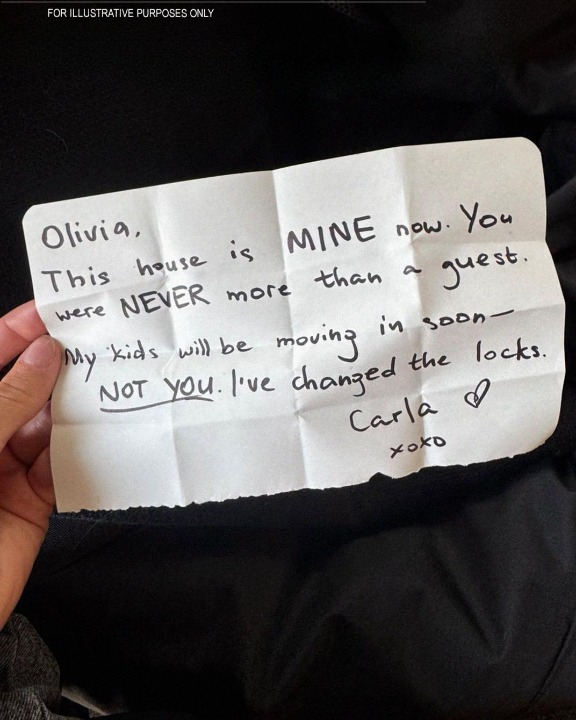 FOR ILLUSTRATIVE PURPOSES ONLY
Olivia,
This house is MINE now. You
were NEVER more than a guest.
My kids will be moving in soon—
NOT YOU. I've changed the locks.
Carla ♡
xoxo